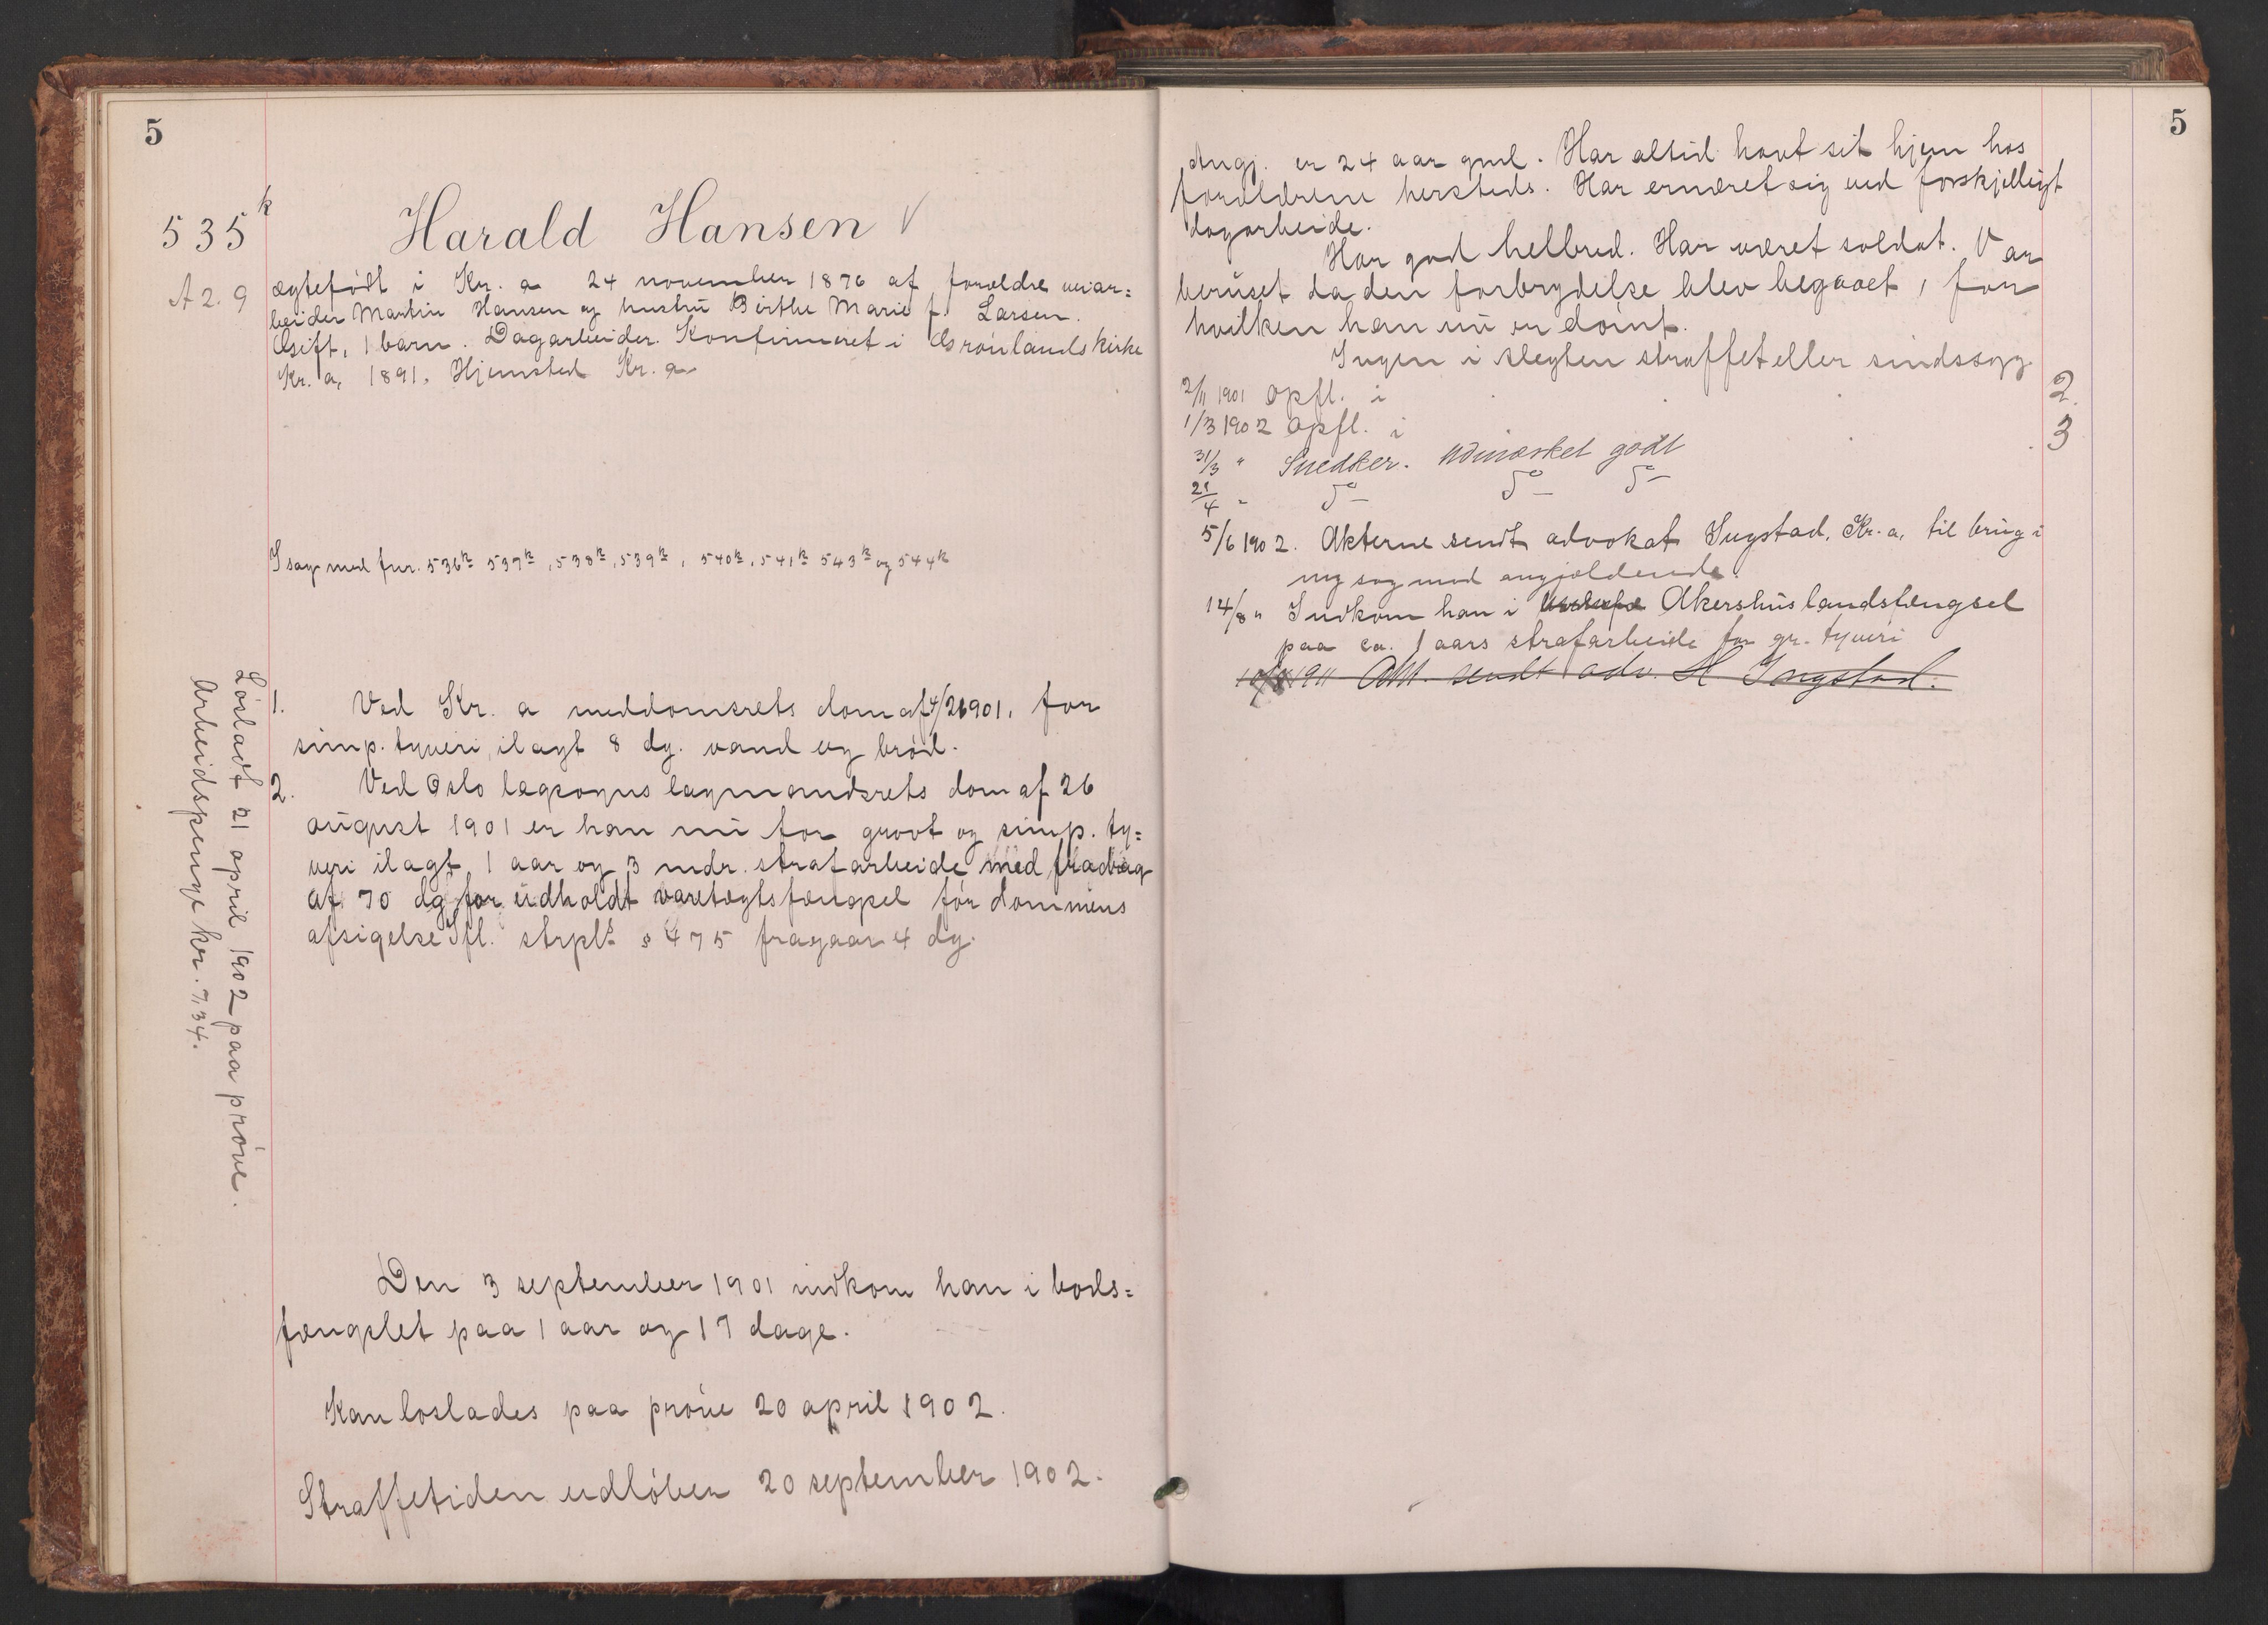 5
535 k
A 2. 9
Harald Hansen V
ægtefødt i Kr. a 24 november 1876 af forældre veiar=
beider Martin Hansen og hustru Birthe Marie f. Larsen.
Gift, 1 barn. Dagarbeider. Konfirmeret i Grønlands kirke
Kr. a, 1891. Hjemsted Kr. a
I sag med fnr. 536k 537k, 538k, 539k, 540k, 541k 543k og 544k
1. Ved Kr. a meddomsrets dom af 4/2 1901, for
simp. tyveri, ilagt 8 dg. vand og brød.
2. Ved Oslo lagsogns lagmandsrets dom af 26
august 1901 er han nu for grovt og simp. ty=
veri ilagt 1 aar og 3 mdr. strafarbeide med fradrag
af 70 dg. for udholdt varetægtsfængsel før dommens
afsigelse Ifl. strpl. § 475 fragaar 4 dg.
Løsladt 21 april 1902 paa prøve.
Arbeidspenge kr. 7,34.
Den 3 september 1901 indkom han i bods=
fængslet paa 1 aar og 17 dage.
Kan løslades paa prøve 20 april 1902.
Straffetiden udløber 20 september 1902.
5
Angj. er 24 aar gml. Har altid havt sit hjem hos
forældrene hersteds. Har ernæret sig ved forskjelligt
dagarbeide.
Har god helbred. Har været soldat. Var
beruset da den forbrydelse blev begaaet, for
hvilken han nu er dømt.
Ingen i slegten straffet eller sindssyg
2/11 1901 opfl. i 2.
1/3 1902 opfl. i 3
31/3 " Snedker. udmærket godt
21/4 " do do do
5/6 1902. Akterne sendt advokat Ingstad, Kr. a, til brug i
ny sag mod angjældende.
14/8 " Indkom han i Akershus landsfængsel
paa ca. 1 aars strafarbeide for gr. tyveri
1911 Akt. sendt adv. H Ingstad.